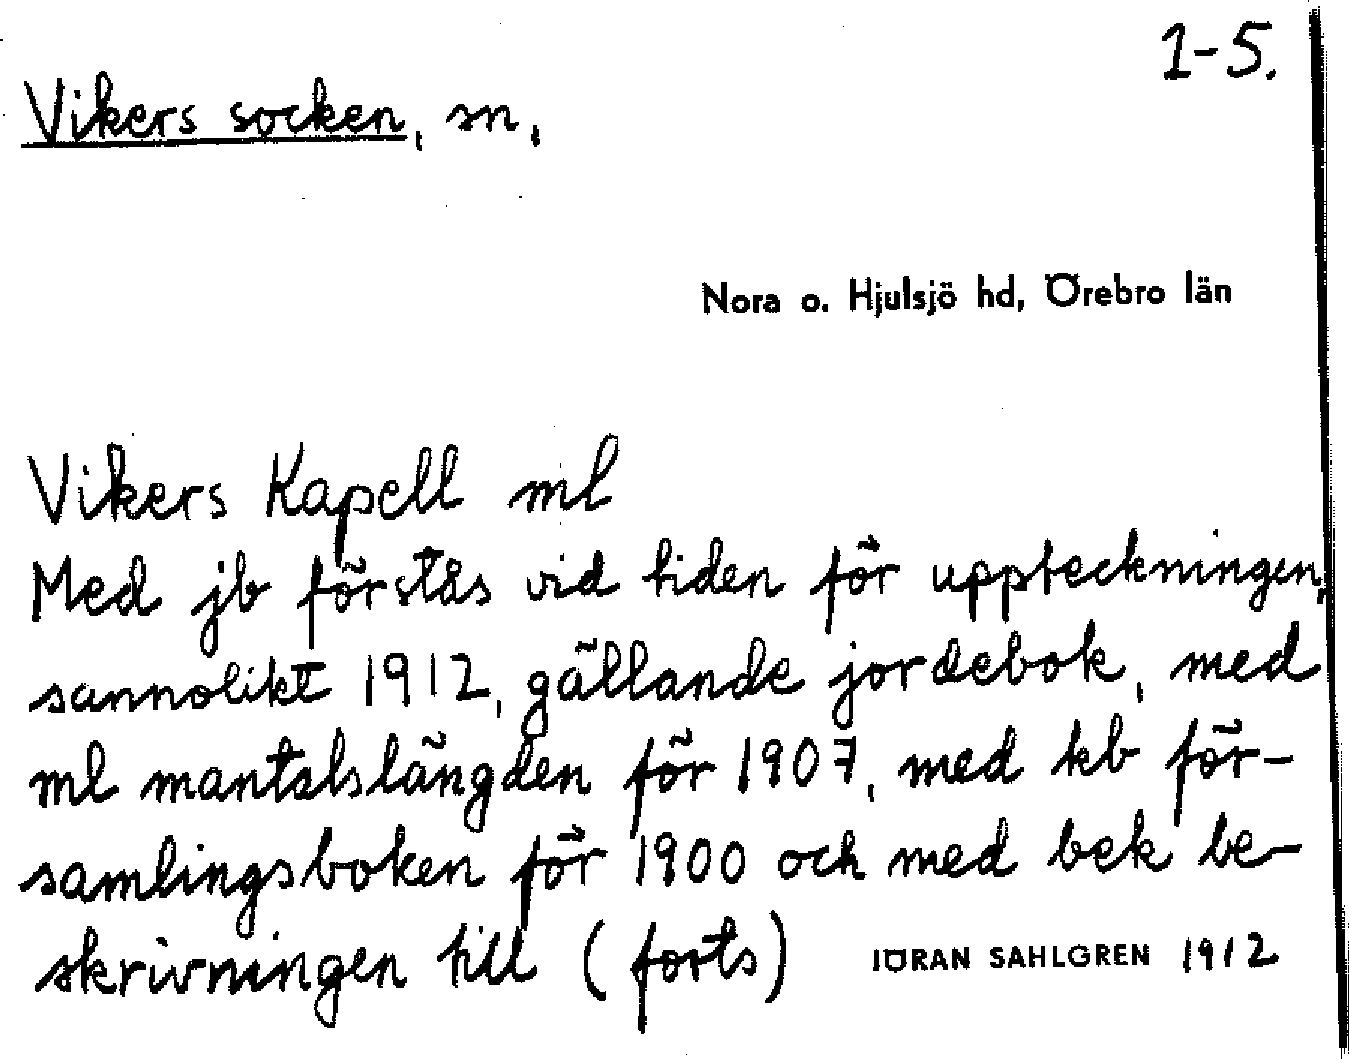 1-5.
Vikers socken, sn,
Nora o. Hjulsjö hd, Örebro län
Vikers Kapell ml
Med jb förstås vid tiden för uppteckningen,
sannolikt 1912, gällande jordebok, med
ml mantalslängden för 1907, med kb för-
samlingsboken för 1900 och med bek be-
skrivningen till (forts) JÖRAN SAHLGREN 1912